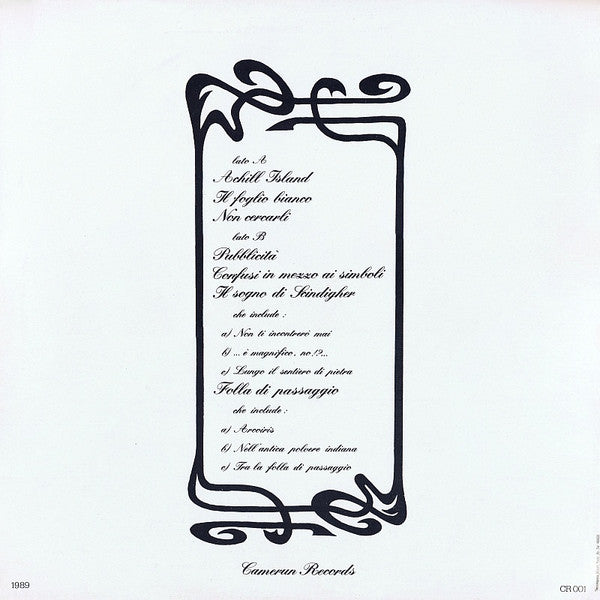 lato A
Achill Island
Il foglio bianco
Non cercarli
lato B
Pubblicità
Confusi in mezzo ai simboli
Il sogno di Scindigher
che include :
a) Non ti incontrerò mai
b) ... è magnifico, no!?...
c) Lungo il sentiero di pietra
Folla di passaggio
che include :
a) Arcoiris
b) Nell'antica polvere indiana
c) Tra la folla di passaggio
Camerun Records
1989
CR 001